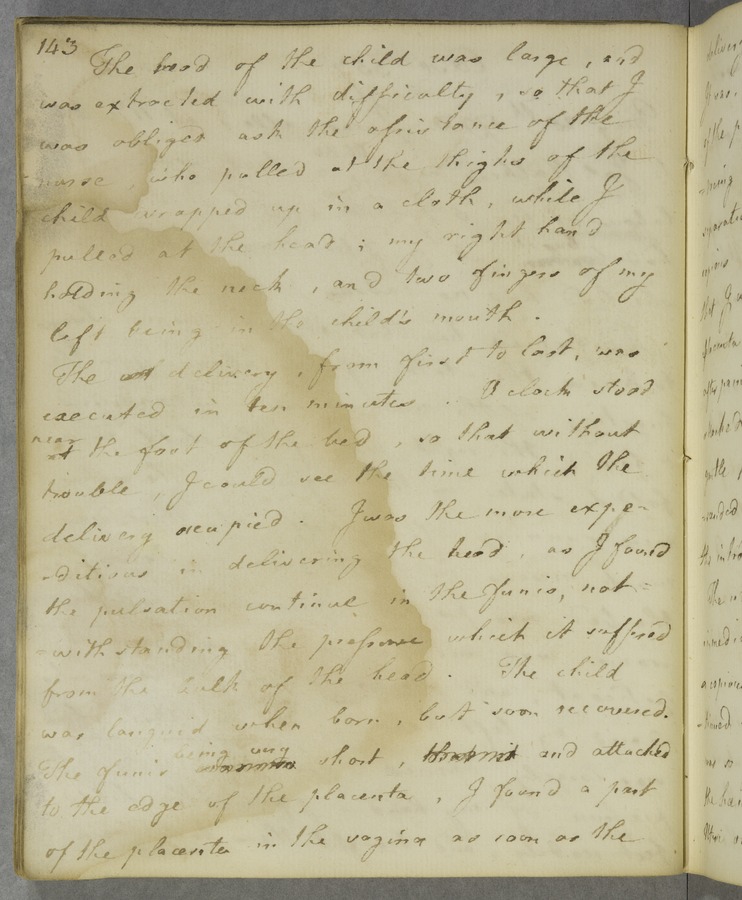 143
The head of the child was large, and
was extracted with difficulty, so that I
was obliged ask the assistance of the
nurse, who pulled at the thighs of the
child wrapped up in a cloth, while I
pulled at the head; my right hand
holding the neck, and two fingers of my
left being in the child's mouth.
The delivery, from first to last, was
executed in ten minutes. A clock stood
near the foot of the bed, so that without
trouble, I could see the time which the
delivery occupied. I was the more expe-
-ditious in delivering the head, as I found
the pulsation continue in the funis, not=
=withstanding the pressure which it suffered
from the bulk of the head. The child
was languid when born, but soon recovered.
being very
The funis short, and attached
to the edge of the placenta, I found a part
of the placenta in the vagina as soon as the